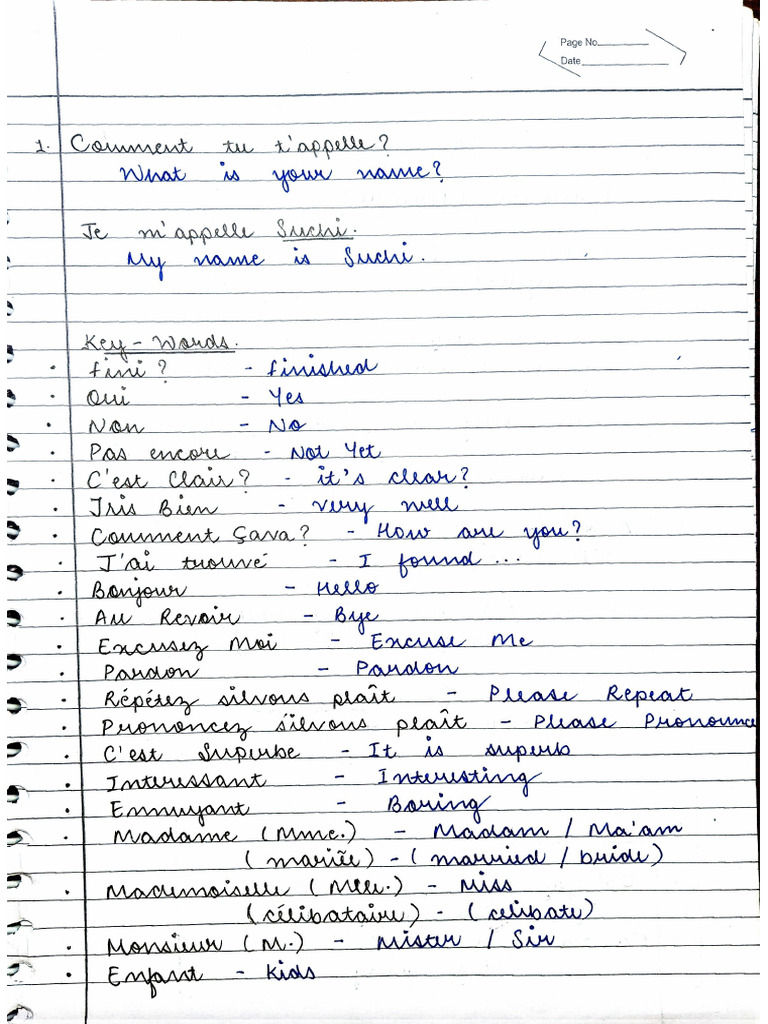 Page No.
Date
1. Comment tu t'appelle?
What is your name?
Je m'appelle Suchi.
My name is Suchi.
Key - Words.
• fini? - finished
• Oui - Yes
• Non - No
• Pas encore - Not Yet
• C'est Clair? - it's clear?
• Tris Bien - very well
• Comment Sava? - How are you?
• J'ai trouvé - I found ...
• Bonjour - Hello
• Au Revoir - Bye
• Excusez Moi - Excuse Me
• Pardon - Pardon
• Répétez silvous plaît - Please Repeat
• Prononcez s'ilvous plaît - Please Pronounce
• C'est Superbe - It is superb
• Interessant - Interesting
• Ennuyant - Boring
• Madame (Mme.) - Madam / Ma'am
(mariée) - (married / bride)
• Mademoiselle (Mlle.) - Miss
(célibataire) - (celibate)
• Monsieur (M.) - Mister / Sir
• Enfant - Kids